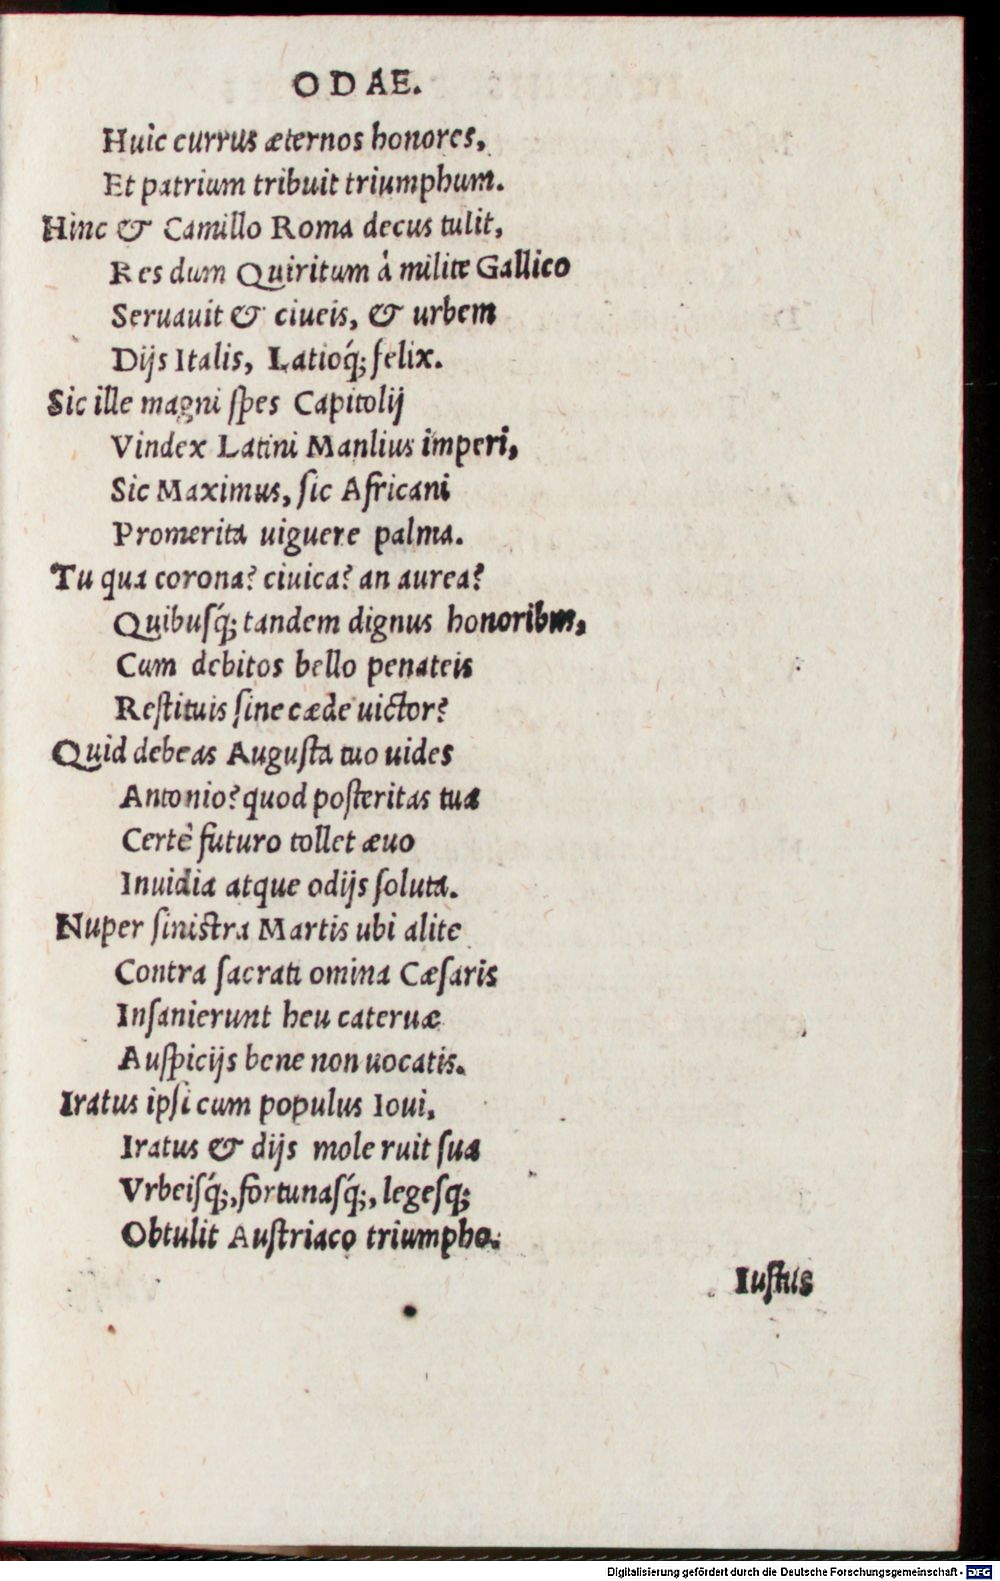 ODAE.
Huic currus æternos honores,
Et patrium tribuit triumphum.
Hinc & Camillo Roma decus tulit,
Res dum Quiritum à milite Gallico
Seruauit & ciueis, & urbem
Dijs Italis, Latioq́; felix.
Sic ille magni ſpes Capitolij
Vindex Latini Manlius imperi,
Sic Maximus, ſic Africani
Promerita uiguere palma.
Tu qua corona? ciuica? an aurea?
Quibuſq́; tandem dignus honoribus,
Cum debitos bello penateis
Reſtituis ſine cæde uictor?
Quid debeas Auguſta tuo uides
Antonio? quod poſteritas tua
Certè futuro tollet æuo
Inuidia atque odijs ſoluta.
Nuper ſiniſtra Martis ubi alite
Contra ſacrati omina Cæſaris
Inſanierunt heu cateruæ
Auſpicijs bene non uocatis.
Iratus ipſi cum populus Ioui,
Iratus & dijs mole ruit ſua
Vrbeiſq́;, fortunaſq́;, legeſq;
Obtulit Auſtriaco triumpho.
Iuſtus
Digitalisierung gefördert durch die Deutsche Forschungsgemeinschaft - DFG